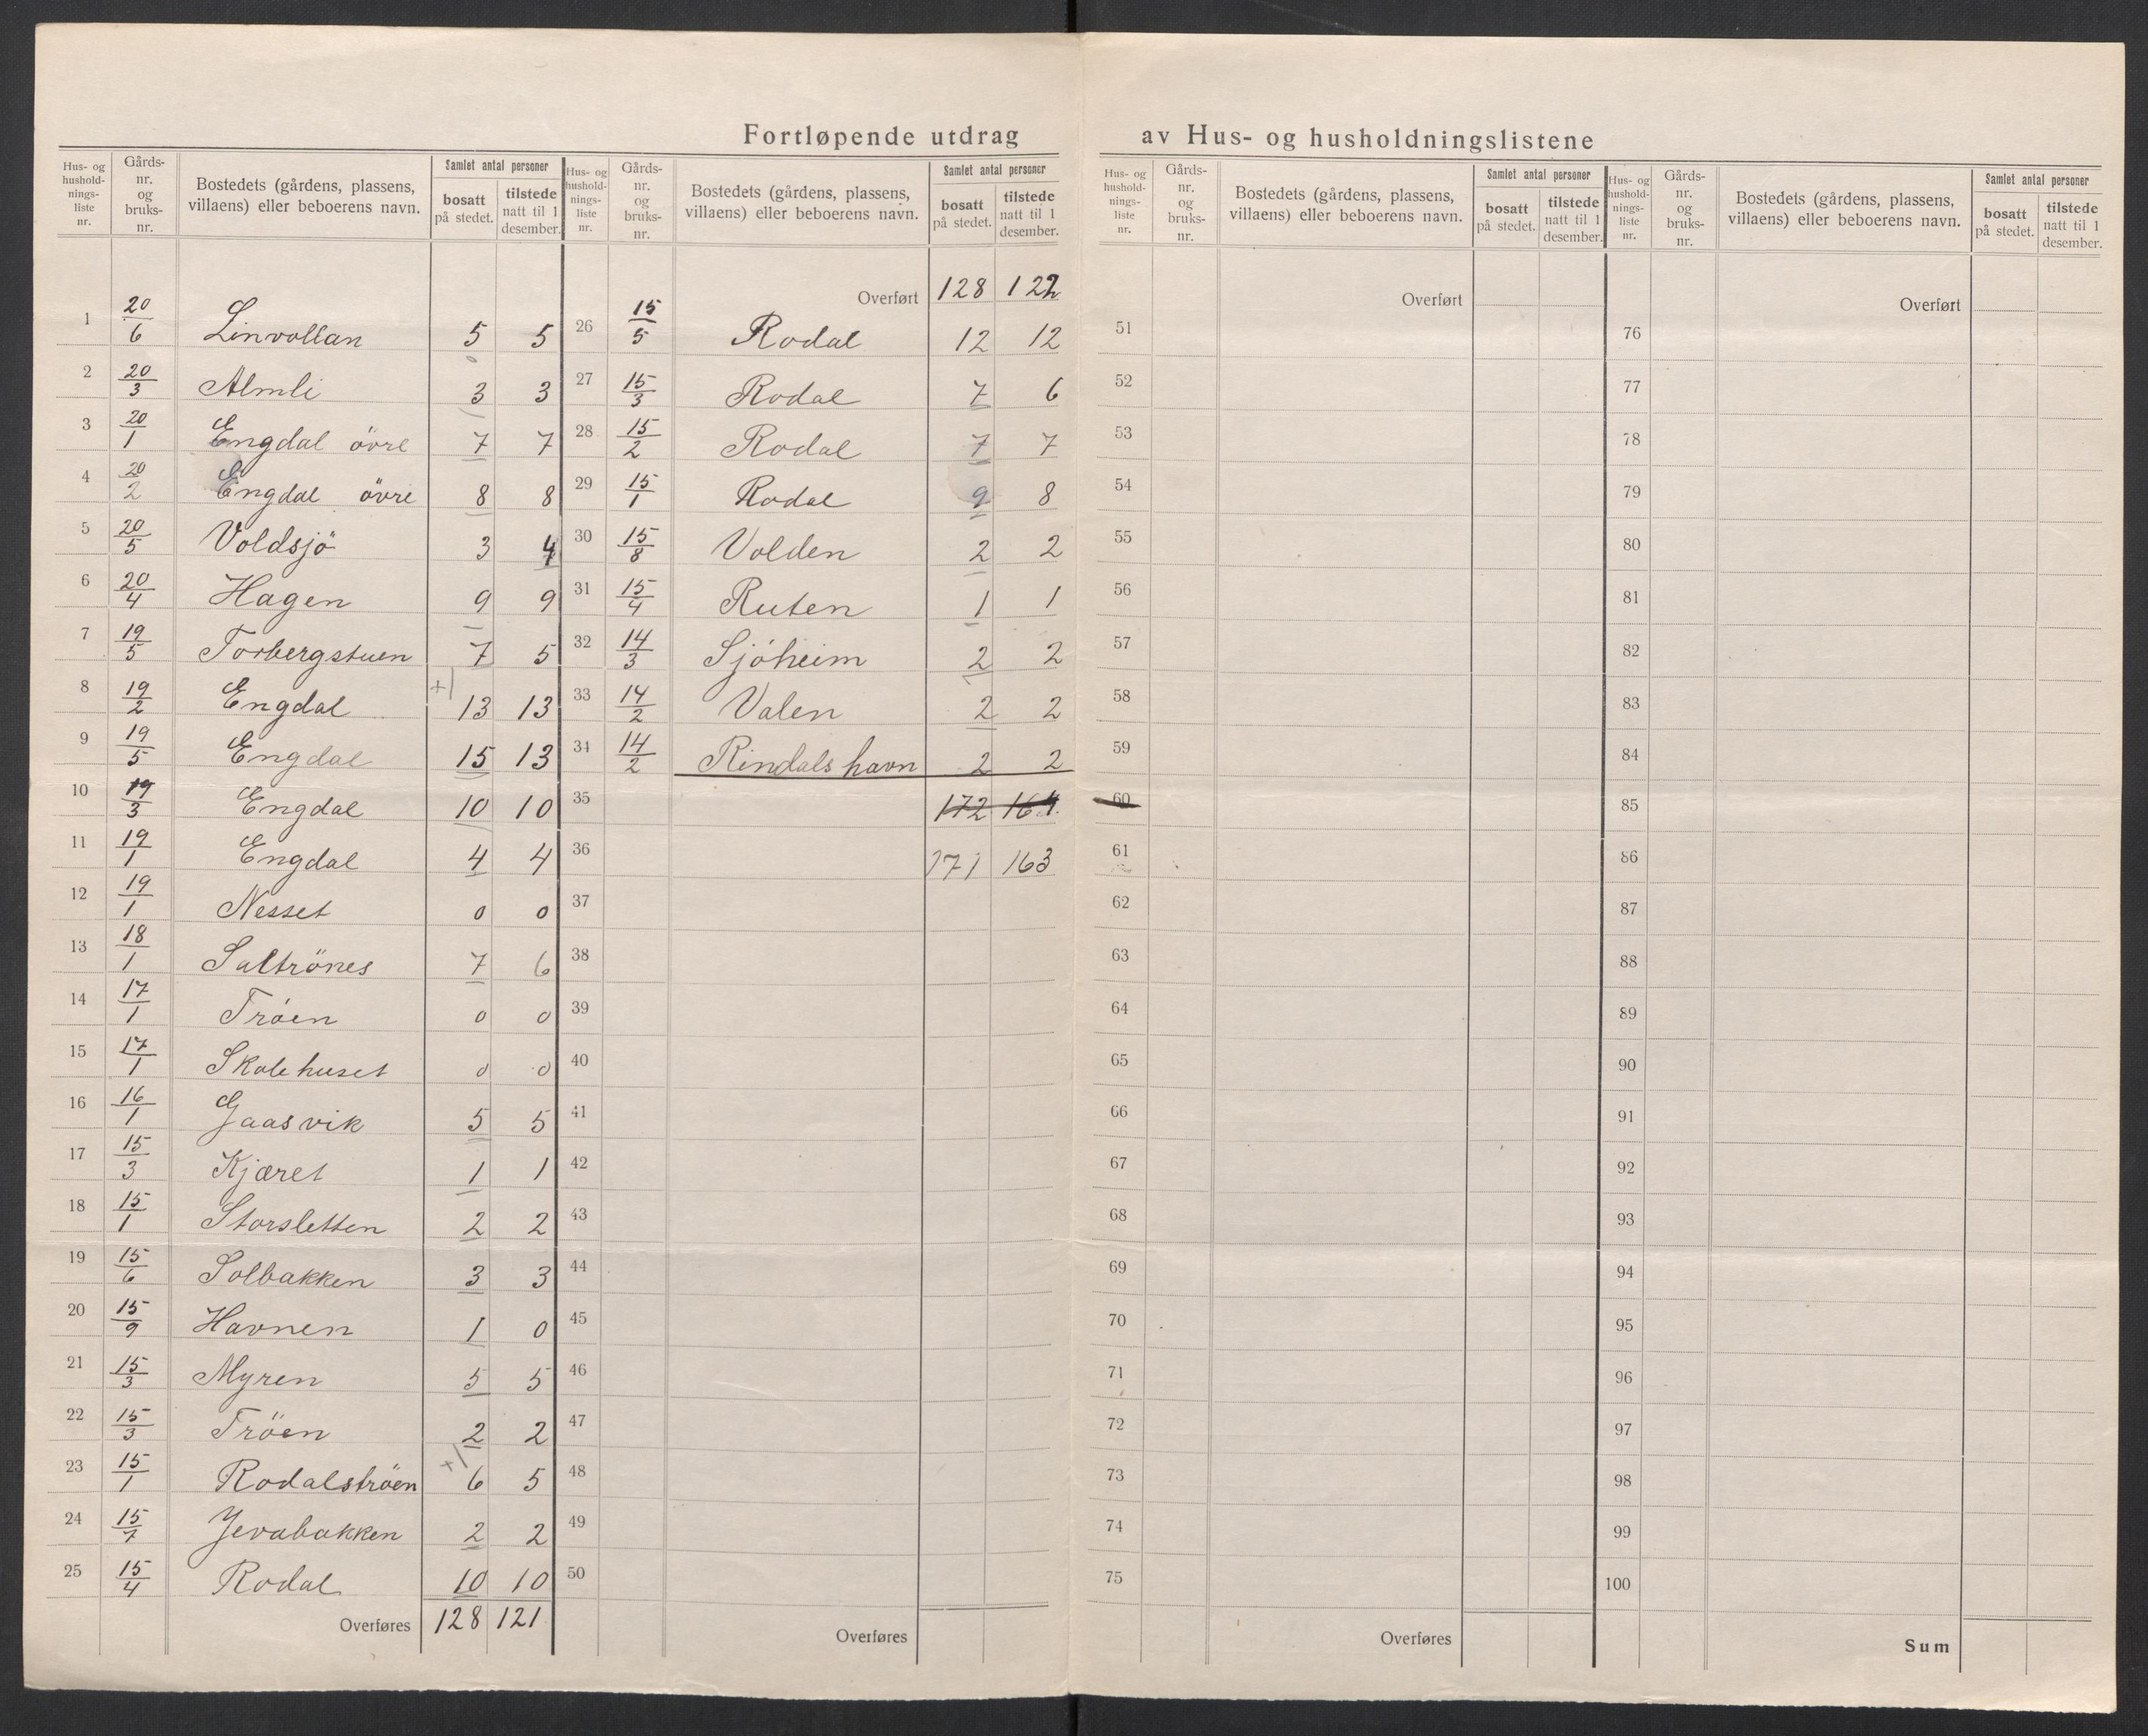 Fortløpende utdrag av Hus- og husholdningslistene
Hus- og hushold-nings-liste nr. | Gårds-nr. og bruks-nr. | Bostedets (gårdens, plassens, villaens) eller beboerens navn. | Samlet antal personer | bosatt på stedet. | tilstede natt til 1 desember.
1 | 20/6 | Linvollan | 5 | 5
2 | 20/3 | Almli | 3 | 3
3 | 20/1 | Engdal övre | 7 | 7
4 | 20/2 | Engdal övre | 8 | 8
5 | 20/5 | Voldsjö | 3 | 4
6 | 20/4 | Hagen | 9 | 9
7 | 19/5 | Torbergstuen | 7 | 5
8 | 19/2 | Engdal | +1 13 | 13
9 | 19/5 | Engdal | 15 | 13
10 | 19/3 | Engdal | 10 | 10
11 | 19/1 | Engdal | 4 | 4
12 | 19/1 | Nesset | 0 | 0
13 | 18/1 | Saltrönes | 7 | 6
14 | 17/1 | Tröen | 0 | 0
15 | 17/1 | Skolehuset | 0 | 0
16 | 16/1 | Gaasvik | 5 | 5
17 | 15/3 | Kjæret | 1 | 1
18 | 15/1 | Storsletten | 2 | 2
19 | 15/6 | Solbakken | 3 | 3
20 | 15/9 | Havnen | 1 | 0
21 | 15/3 | Myren | 5 | 5
22 | 15/3 | Tröen | 2 | 2
23 | 15/1 | Rodalströen | +1 6 | 5
24 | 15/7 | Jevabakken | 2 | 2
25 | 15/4 | Rodal | 10 | 10
Overføres | 128 | 121
Hus- og hushold-nings-liste nr. | Gårds-nr. og bruks-nr. | Bostedets (gårdens, plassens, villaens) eller beboerens navn. | Samlet antal personer | bosatt på stedet. | tilstede natt til 1 desember.
Overført | 128 | 122
26 | 15/5 | Rodal | 12 | 12
27 | 15/3 | Rodal | 7 | 6
28 | 15/2 | Rodal | 7 | 7
29 | 15/1 | Rodal | 9 | 8
30 | 15/8 | Volden | 2 | 2
31 | 15/4 | Ruten | 1 | 1
32 | 14/3 | Sjöheim | 2 | 2
33 | 14/2 | Valen | 2 | 2
34 | 14/2 | Rindalshavn | 2 | 2
35 | 172 | 164
36 | 171 | 163
37
38
39
40
41
42
43
44
45
46
47
48
49
50
Overføres
Hus- og hushold-nings-liste nr. | Gårds-nr. og bruks-nr. | Bostedets (gårdens, plassens, villaens) eller beboerens navn. | Samlet antal personer | bosatt på stedet. | tilstede natt til 1 desember.
Overført
51
52
53
54
55
56
57
58
59
60
61
62
63
64
65
66
67
68
69
70
71
72
73
74
75
Overføres
Hus- og hushold-nings-liste nr. | Gårds-nr. og bruks-nr. | Bostedets (gårdens, plassens, villaens) eller beboerens navn. | Samlet antal personer | bosatt på stedet. | tilstede natt til 1 desember.
Overført
76
77
78
79
80
81
82
83
84
85
86
87
88
89
90
91
92
93
94
95
96
97
98
99
100
Sum